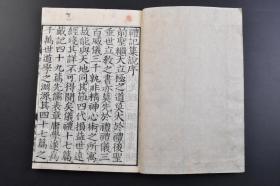 禮記集說序
前聖繼天立極之道莫大於禮後聖
垂世立教之書亦莫先於禮禮儀三
百威儀三千孰非精神心術之所寓
故能與天地同其節四代損益世遠
經殘其詳不可得聞矣儀禮十七篇
戴記四十九篇先儒表章庸學遂為
千萬世道學之淵源其四十七篇之